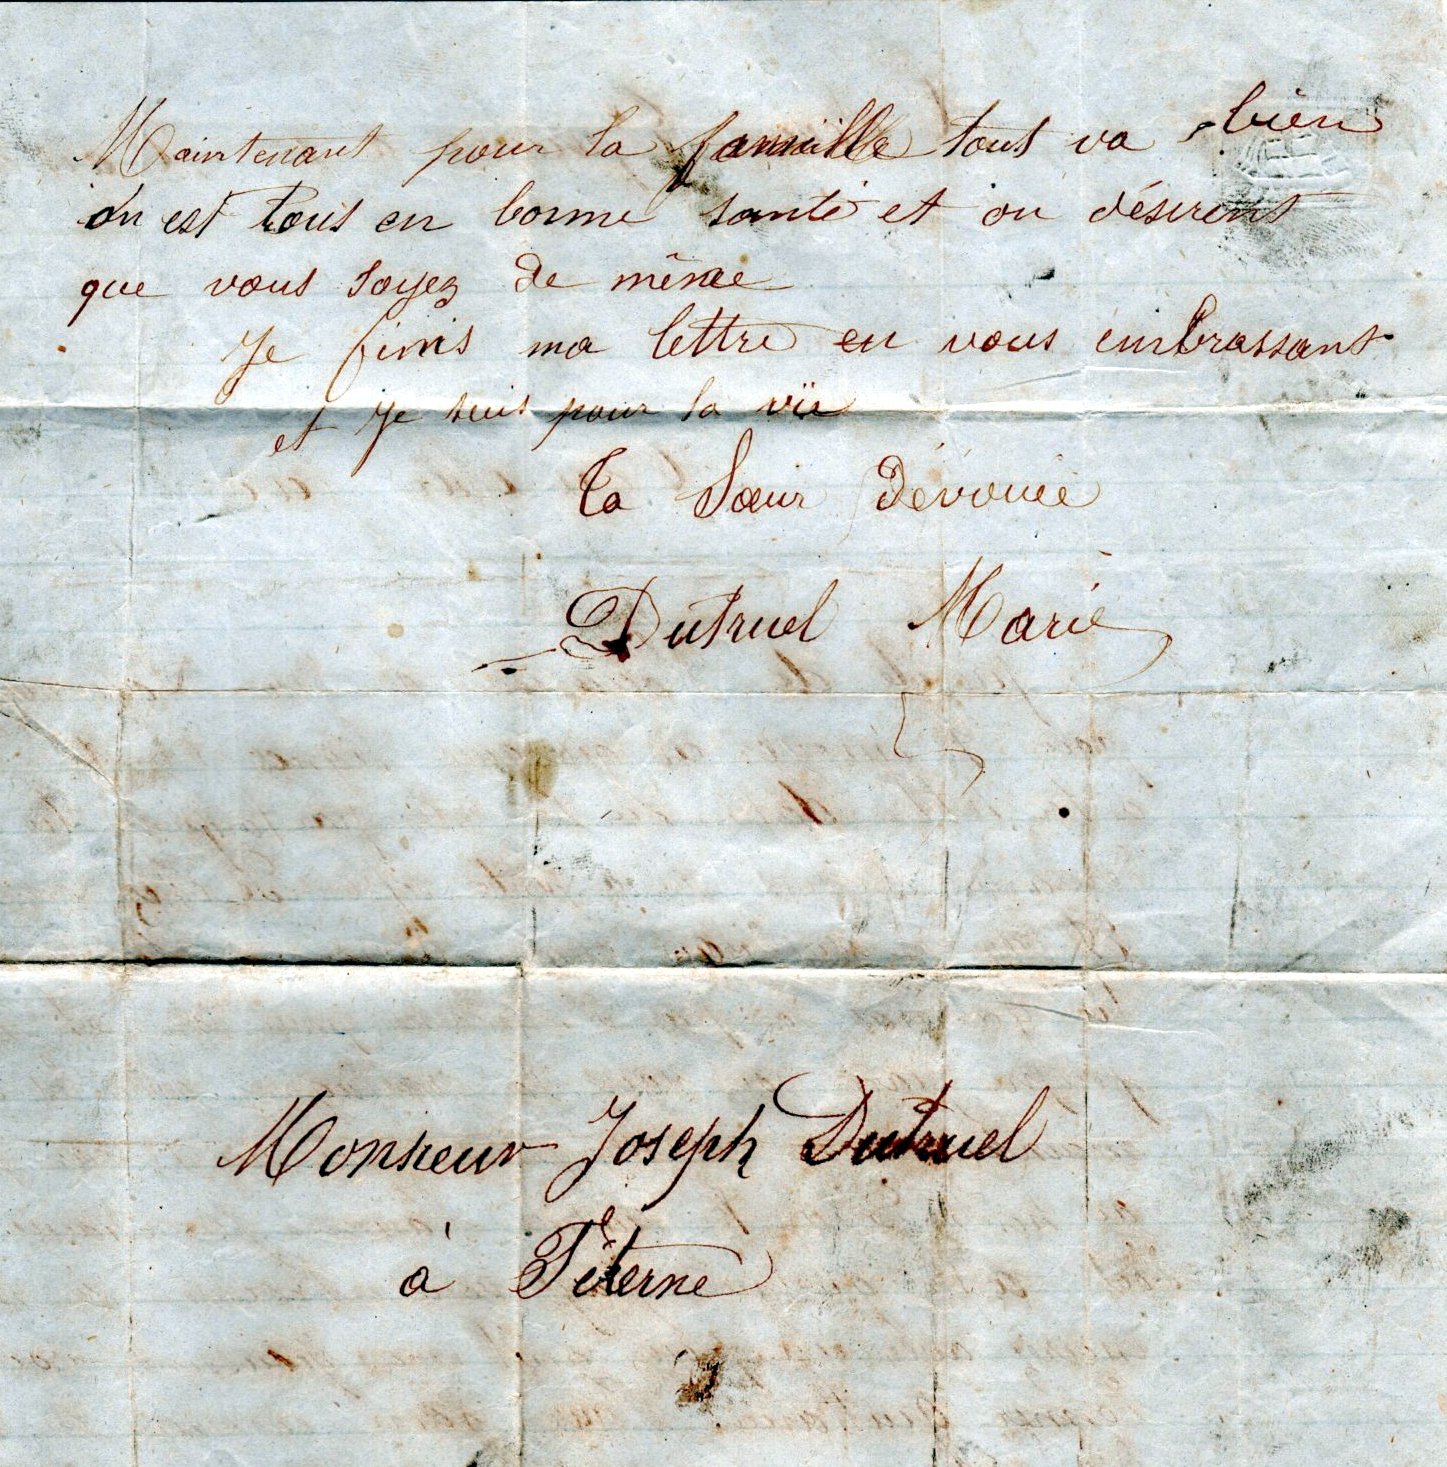 Maintenant pour la famille tout va bien
on est tous en bonne santé et on désirent
que vous soyez de même
Je finis ma lettre en vous embrassant
et je suis pour la vie
Ta Sœur Dévouée
Dutruel Marie
Monsieur Joseph Dutruel
à Féterne